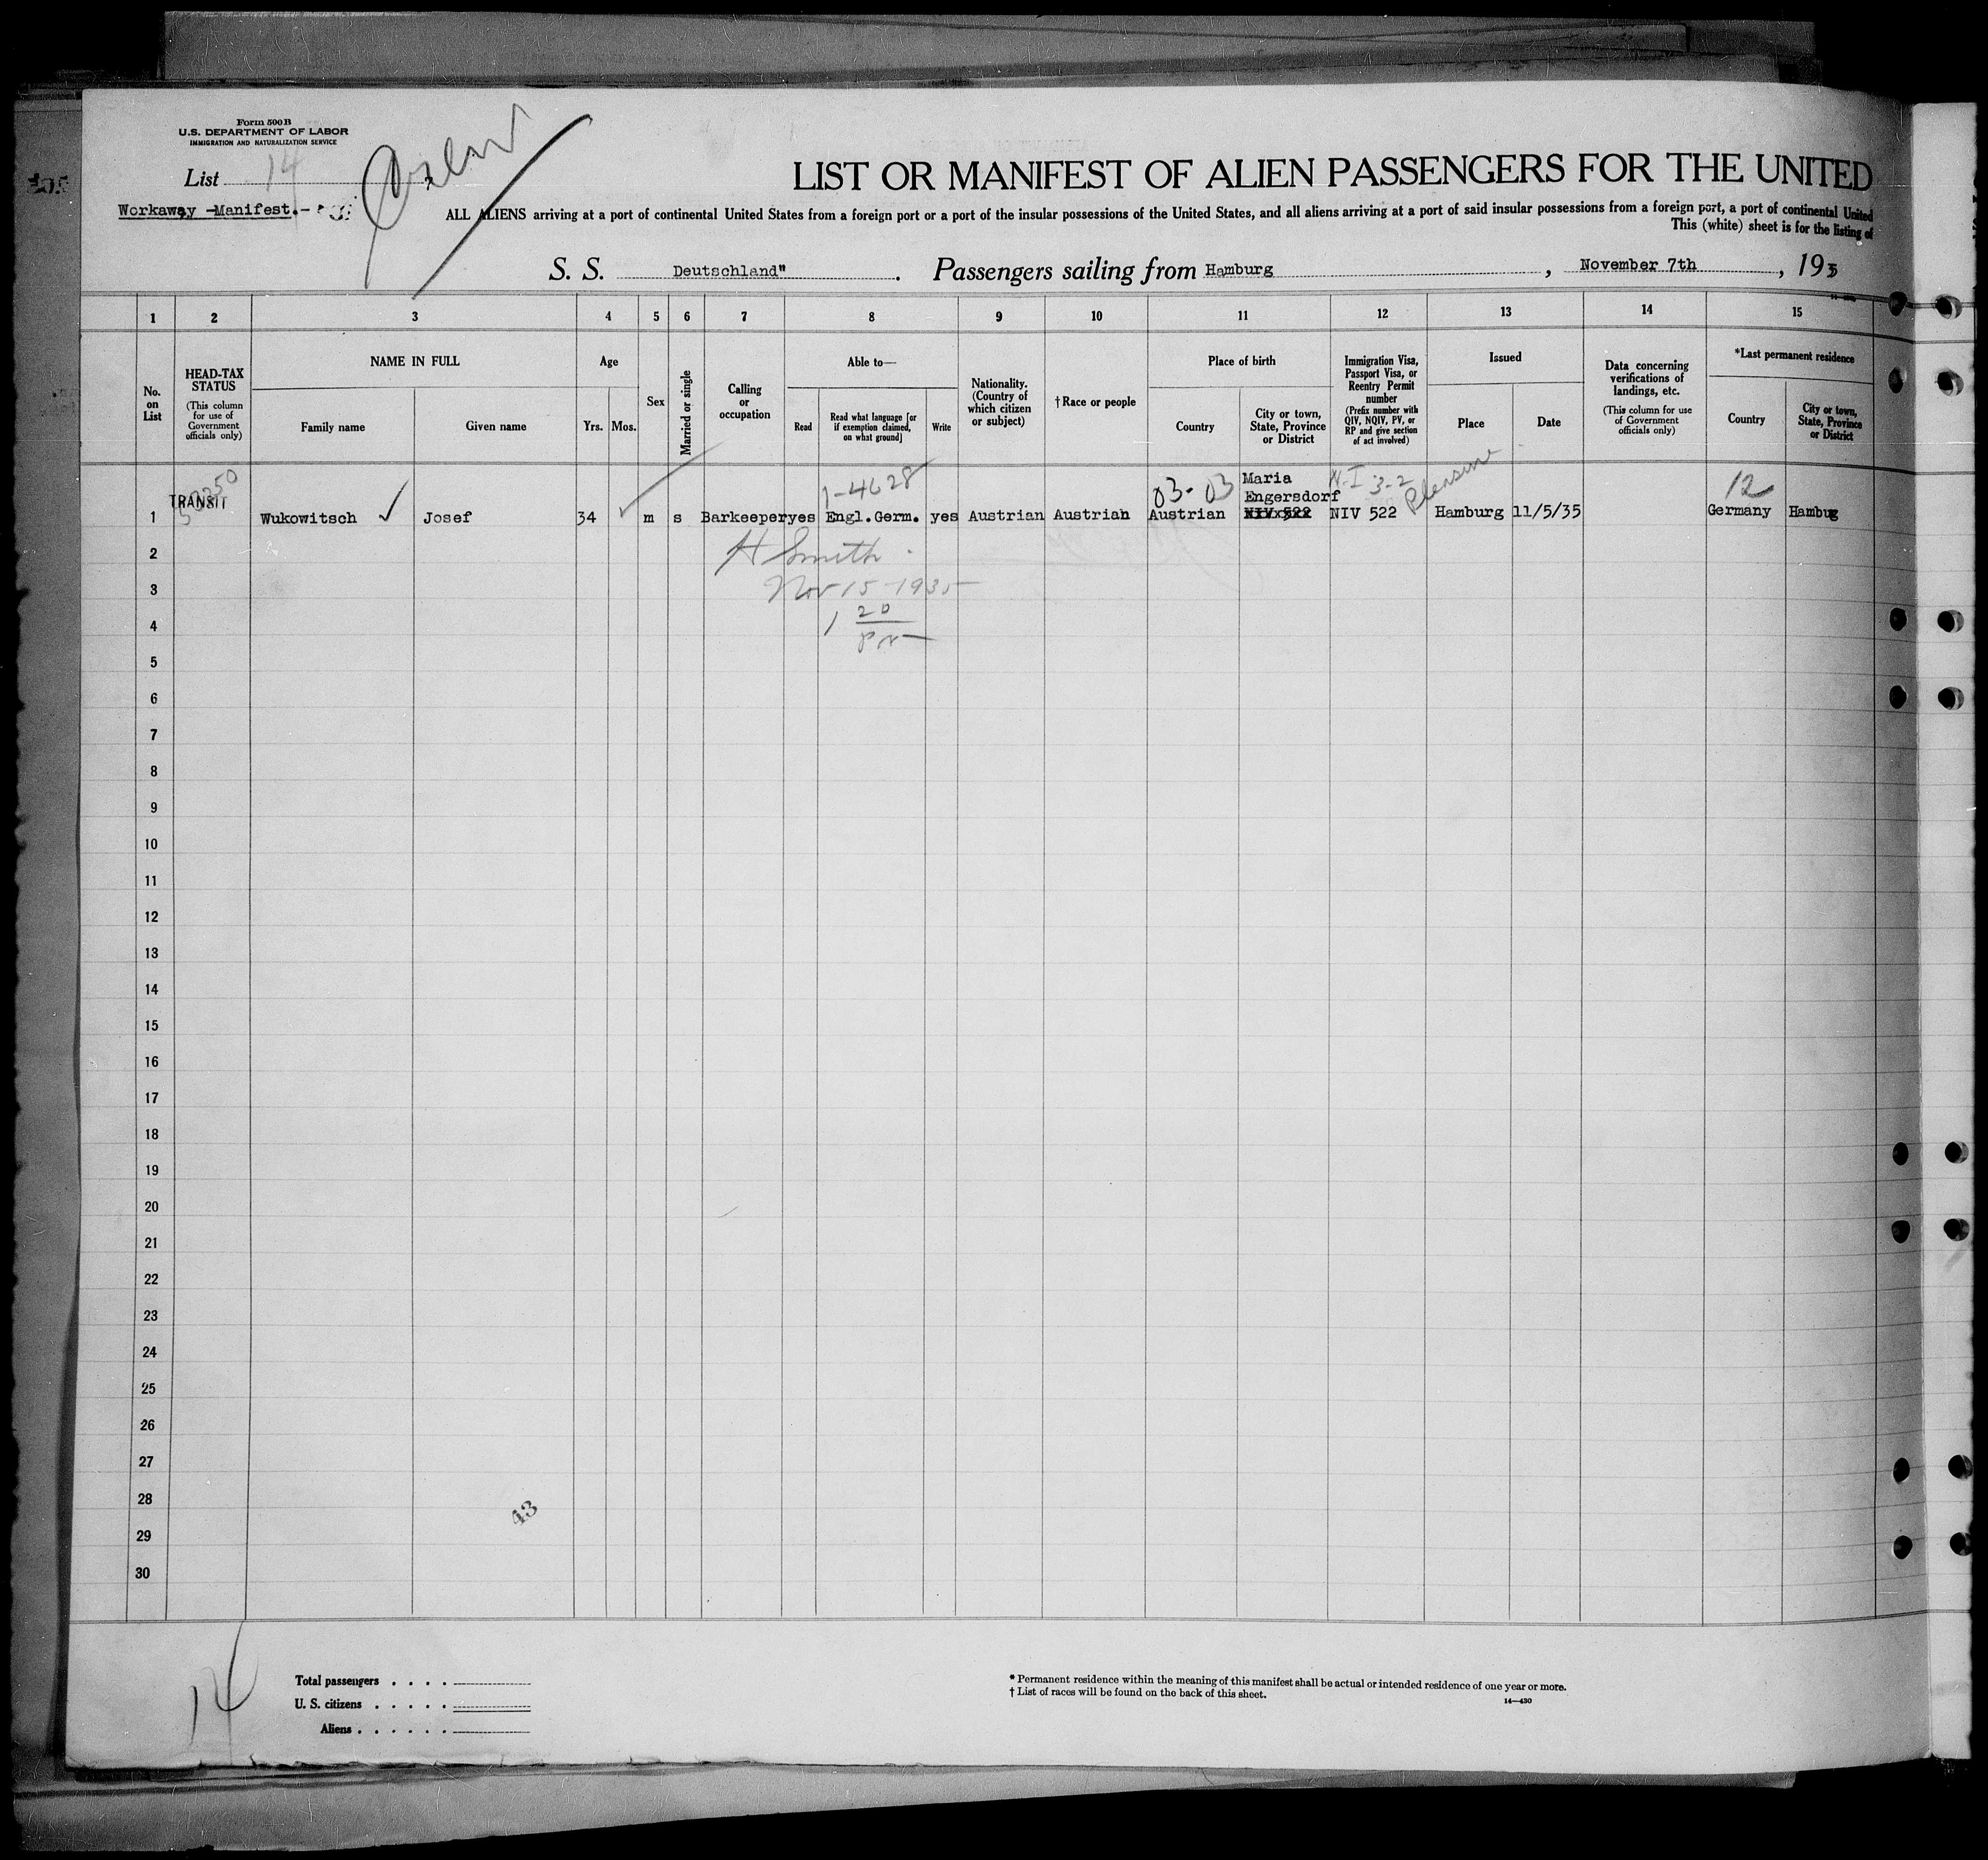 Form 500 B
U.S. DEPARTMENT OF LABOR
IMMIGRATION AND NATURALIZATION SERVICE
List 14
Workaway -Manifest.-
LIST OR MANIFEST OF ALIEN PASSENGERS FOR THE UNITED
ALL ALIENS arriving at a port of continental United States from a foreign port or a port of the insular possessions of the United States, and all aliens arriving at a port of said insular possessions from a foreign port, a port of continental United
This (white) sheet is for the listing of
S. S. Deutschland". Passengers sailing from Hamburg, November 7th, 193
1 2 3 4 5 6 7 8 9 10 11 12 13 14 15
No. on List
HEAD-TAX STATUS
(This column for use of Government officials only)
NAME IN FULL
Family name
Given name
Age
Yrs. Mos.
Sex
Married or single
Calling or occupation
Able to—
Read
Read what language [or if exemption claimed, on what ground]
Write
Nationality. (Country of which citizen or subject)
†Race or people
Place of birth
Country
City or town, State, Province or District
Immigration Visa, Passport Visa, or Reentry Permit number
(Prefix number with QIV, NQIV, PV, or RP and give section of act involved)
Issued
Place
Date
Data concerning verifications of landings, etc.
(This column for use of Government officials only)
*Last permanent residence
Country
City or town, State, Province or District
1-4628
03-03
Maria
Engersdorf
N-I 3-2
Pleasure
12
TRANSIT
1 Wukowitsch Josef 34 m s Barkeeper yes Engl.Germ. yes Austrian Austrian Austrian NIV 522 Hamburg 11/5/35 Germany Hambug
H Smith
Nov 15-1935
1 20
PM
2
3
4
5
6
7
8
9
10
11
12
13
14
15
16
17
18
19
20
21
22
23
24
25
26
27
28
29
30
43
14
Total passengers . . . .
U. S. citizens . . . . .
Aliens . . . . . .
* Permanent residence within the meaning of this manifest shall be actual or intended residence of one year or more.
† List of races will be found on the back of this sheet.
14—430